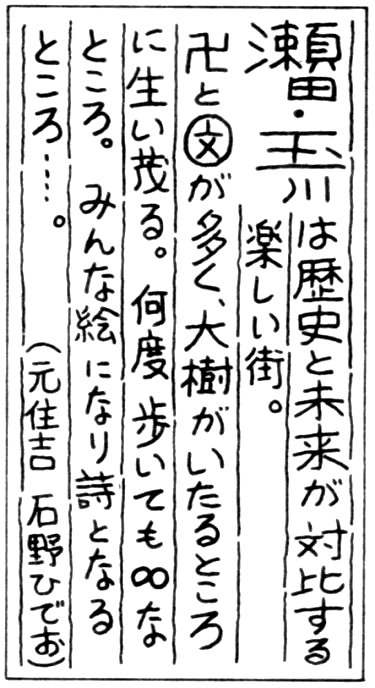 瀬田・玉川は歴史と未来が対比する
楽しい街。
卍と文⃝が多く、大樹がいたるところ
に生い茂る。何度歩いても∞な
ところ。みんな絵になり詩となる
ところ……。（元住吉 石野ひでお）